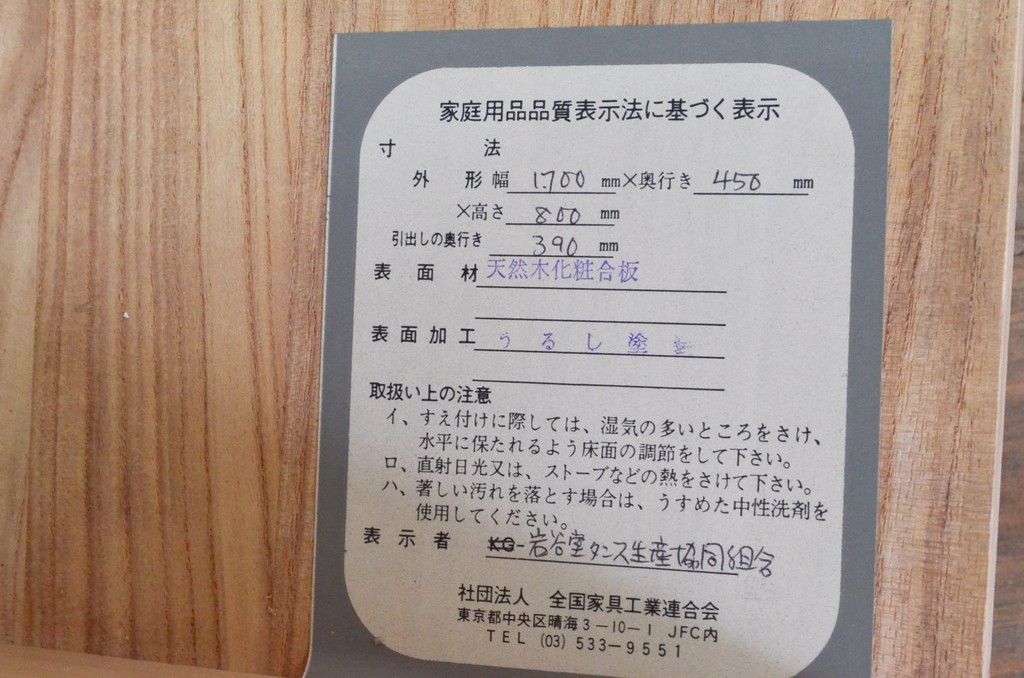 家庭用品品質表示法に基づく表示
寸法
外形幅 1700 mm×奥行き 450 mm
×高さ 800 mm
引出しの奥行き 390 mm
表面材 天然木化粧合板
表面加工 うるし塗
取扱い上の注意
イ、すえ付けに際しては、湿気の多いところをさけ、
水平に保たれるよう床面の調節をして下さい。
ロ、直射日光又は、ストーブなどの熱をさけて下さい。
ハ、著しい汚れを落とす場合は、うすめた中性洗剤を
使用してください。
表示者 KG-岩谷堂タンス生産協同組合
社団法人 全国家具工業連合会
東京都中央区晴海3-10-1 JFC内
TEL (03) 533-9551